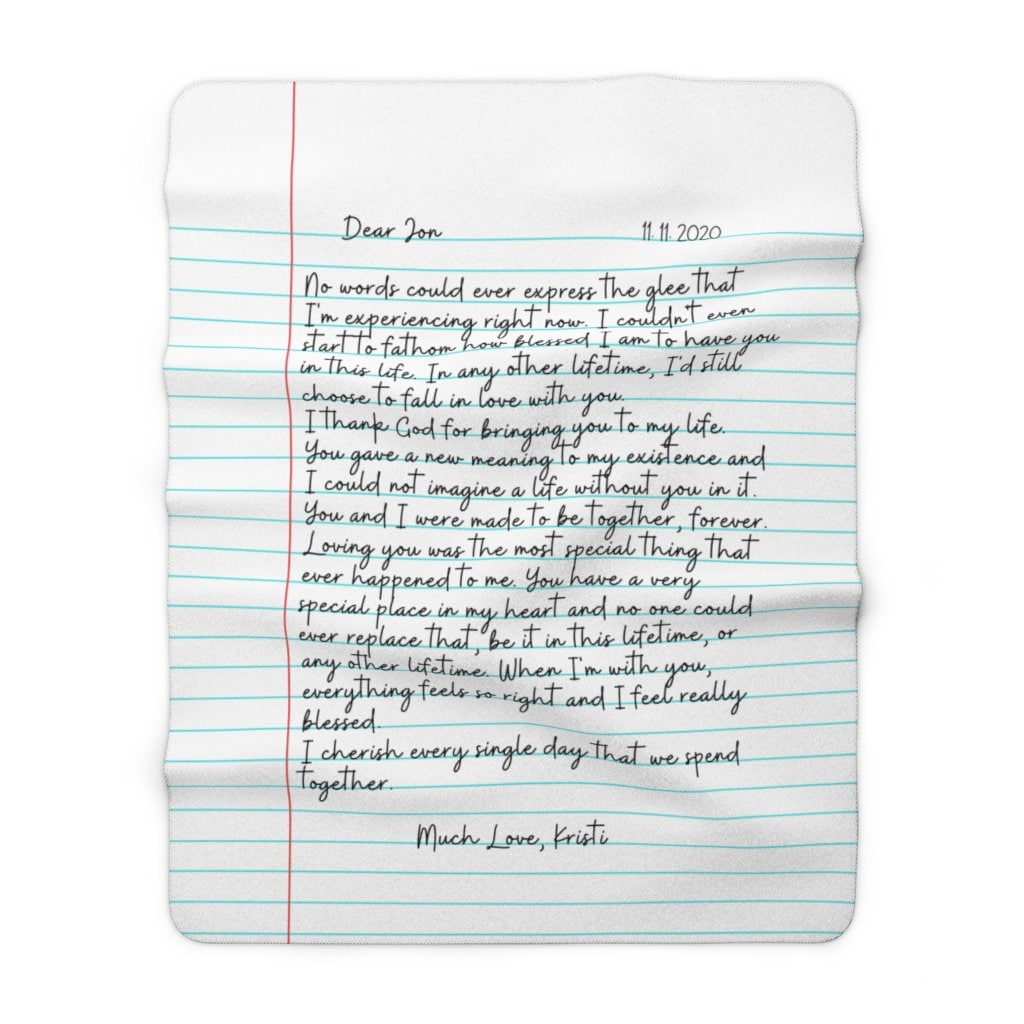 Dear Jon 11.11.2020
No words could ever express the glee that
I'm experiencing right now. I couldn't even
start to fathom how blessed I am to have you
in this life. In any other lifetime, I'd still
choose to fall in love with you.
I thank God for bringing you to my life.
You gave a new meaning to my existence and
I could not imagine a life without you in it.
You and I were made to be together, forever.
Loving you was the most special thing that
ever happened to me. You have a very
special place in my heart and no one could
ever replace that, be it in this lifetime, or
any other lifetime. When I'm with you,
everything feels so right and I feel really
blessed.
I cherish every single day that we spend
together.
Much Love, Kristi